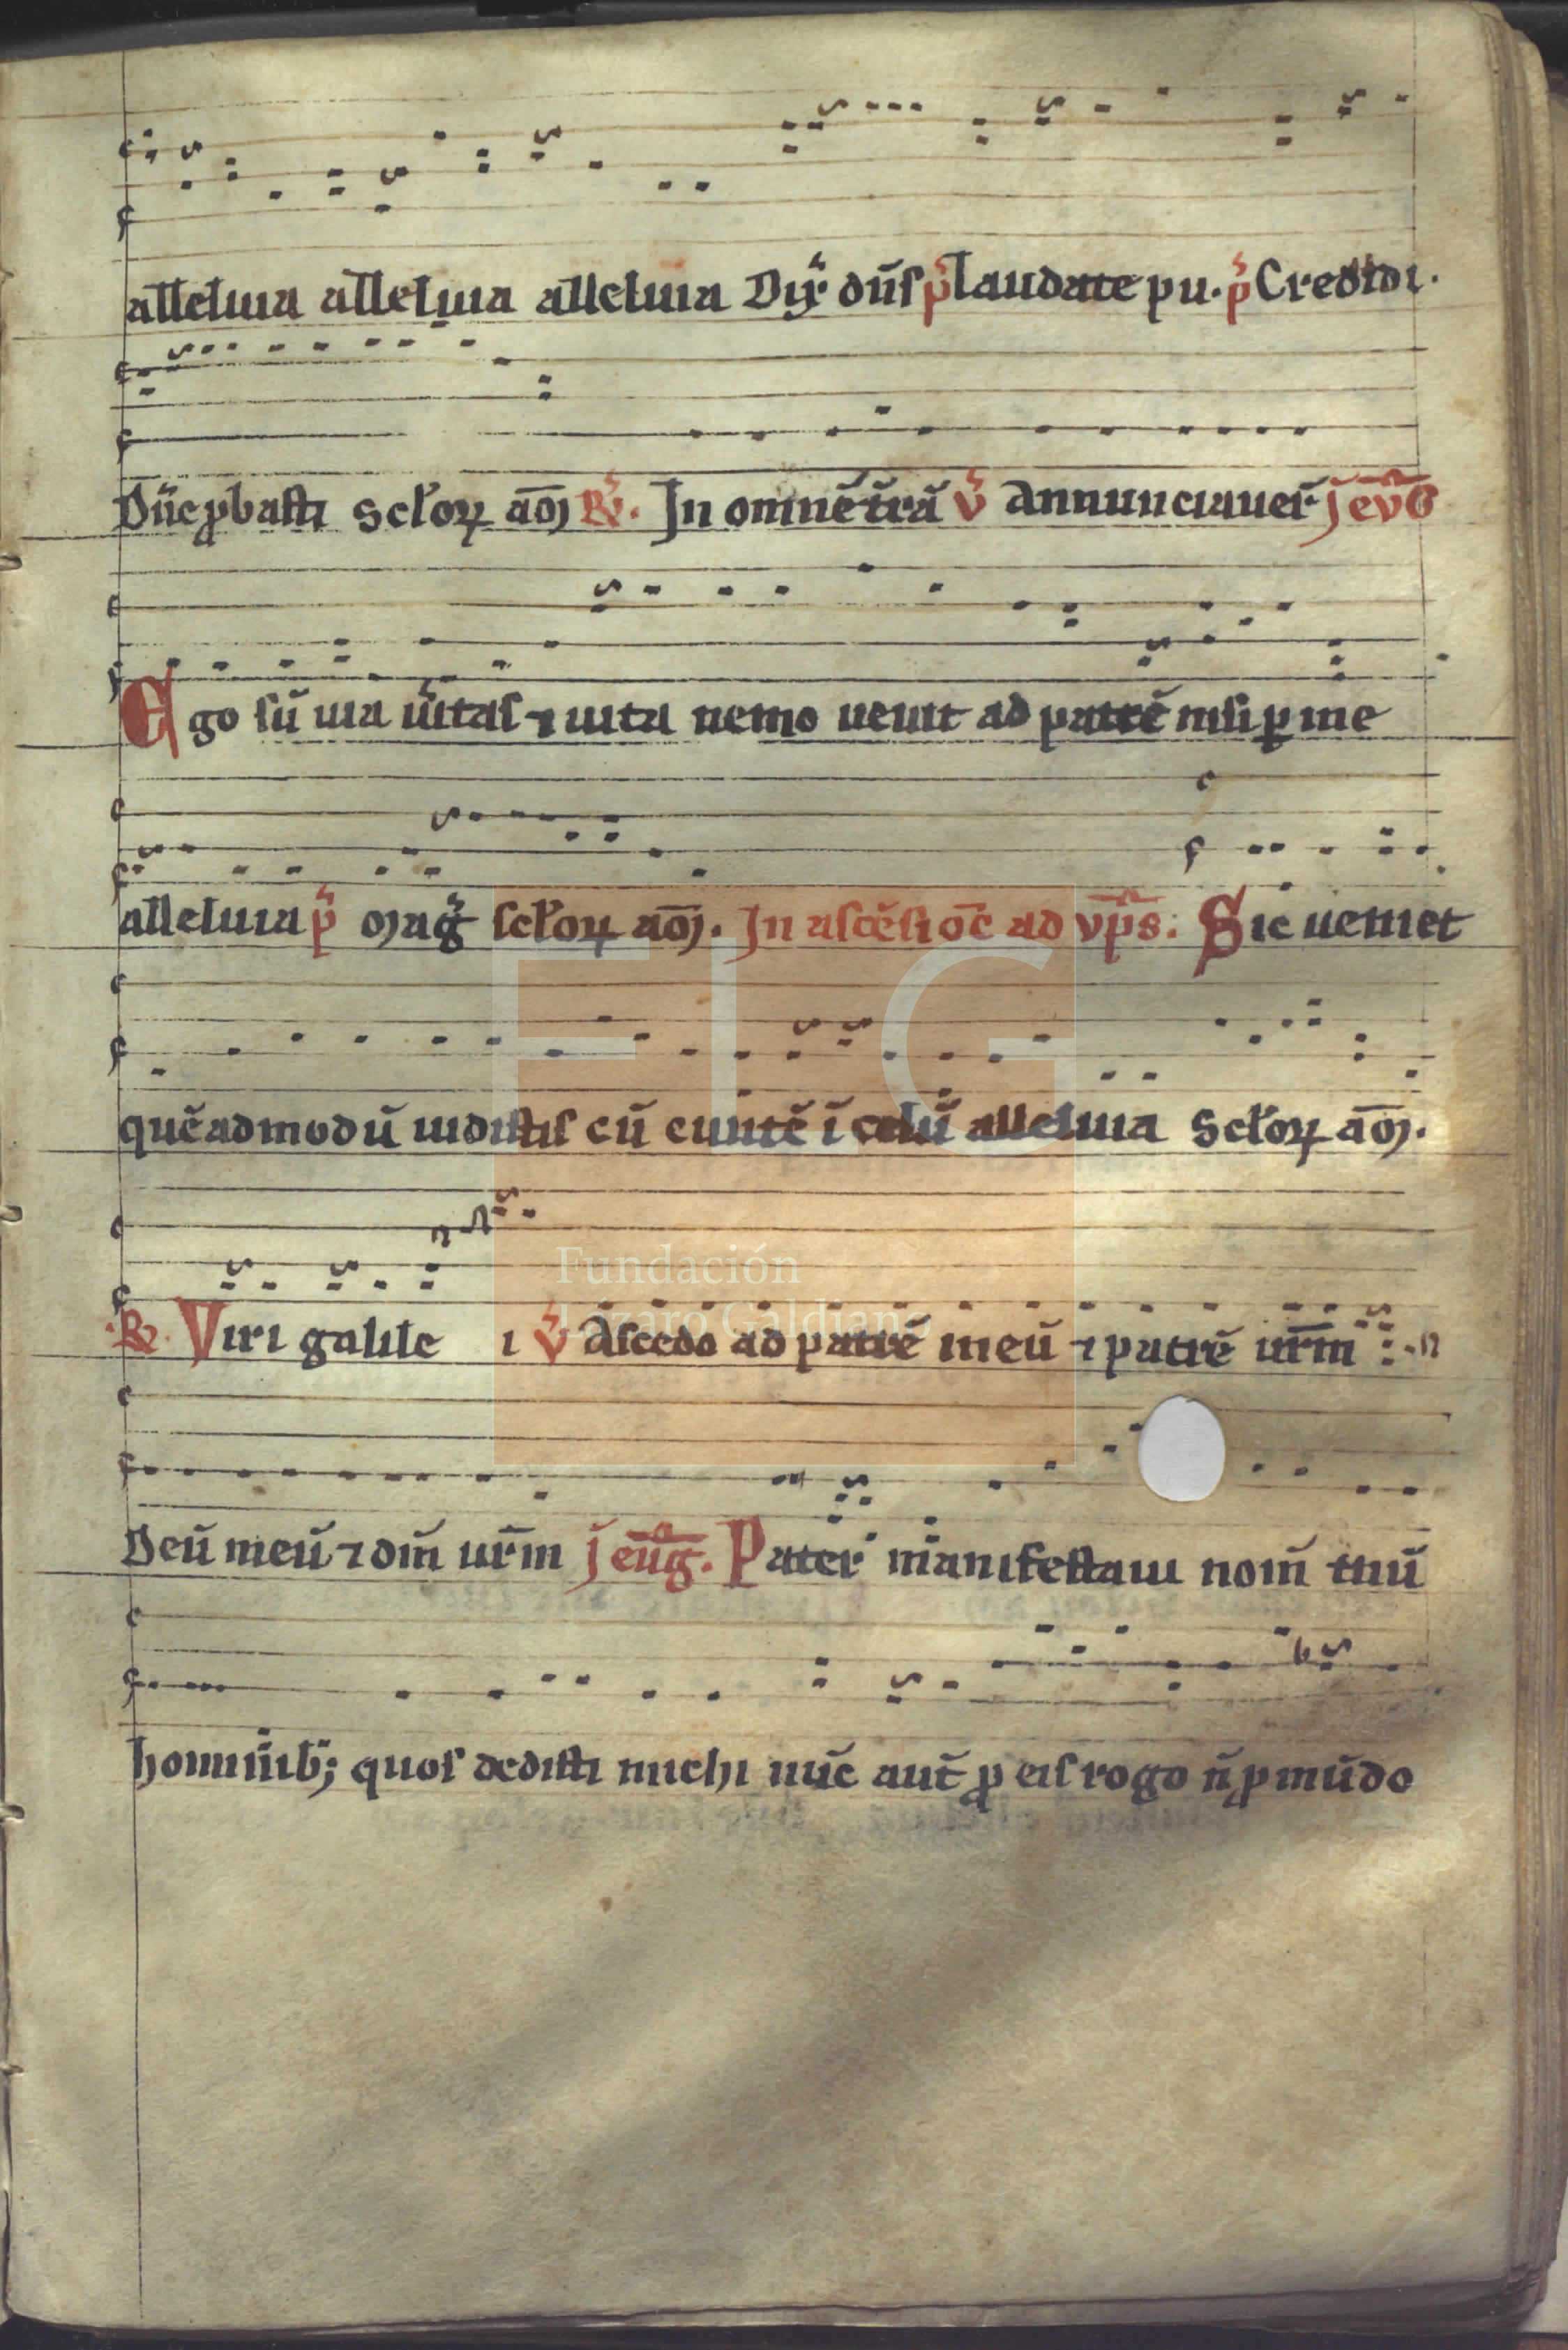 alleluia alleluia alleluia Dix̃ dñs p̃ laudate pu. p̃ Credidi.
Dñe ꝓbasti scłoꝝ am̄ R̃. In omnē t̃rā v̄ Annunciauer̄ J̄ ev̄G
Ego sū uia ũitas ⁊ uita nemo uenit ad patrē nisi ꝑ me
alleluia p̃ Mag̃ scłoꝝ am̄. In ascēsiōe ad vp̄s. Sic ueniet
quēadmodū uidistis eū euntē ī celū alleluia scłoꝝ am̄.
R̃. Viri galile i v̄ Ascedo ad patrē meū ⁊ patrē ur̄m
Deū meū ⁊ dm̄ ur̄m J̄ eūg. Pater manifestaui nom̄ tuū
hominib; quos dedisti michi nūc aut̄ ꝓ eis rogo ñ ꝓ mūdo
FLG
Fundación
Lázaro Galdiano